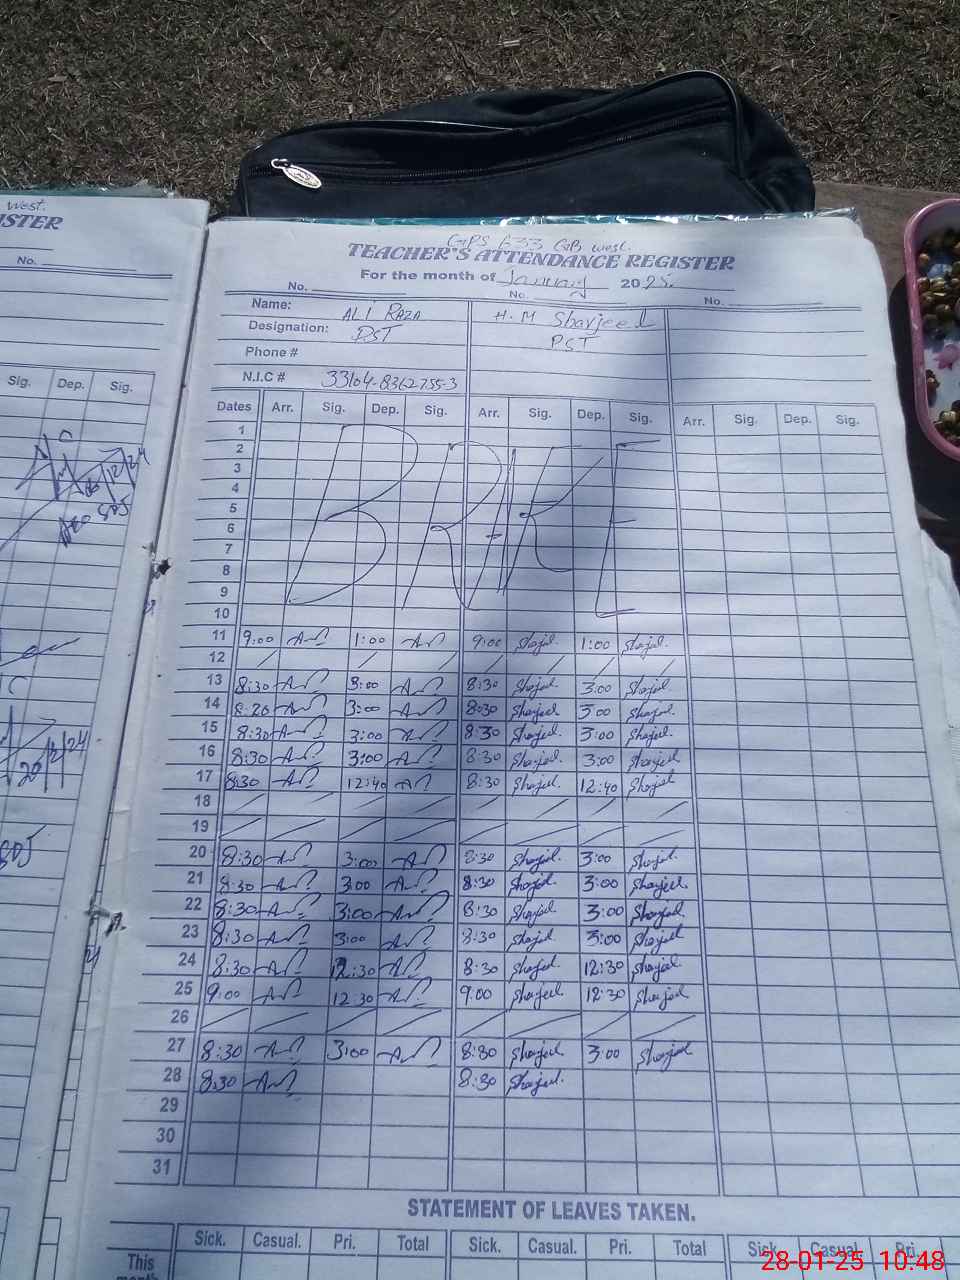 west.
ISTER
No.
Sig. Dep. Sig.
06/12/24
AEO SDJ
20/12/24
SDJ
GPS 633 GB west.
TEACHER'S ATTENDANCE REGISTER
For the month of January 2025.
No. No. No.
Name: ALI RAZA H.M Sharjeel
Designation: PST PST
Phone #
N.I.C # 33104-8362755-3
Dates Arr. Sig. Dep. Sig. Arr. Sig. Dep. Sig. Arr. Sig. Dep. Sig.
1
2
3
4
5
6
7
8
9
10
BRAKE
11 9:00 1:00 9:00 Sharjeel. 1:00 Sharjeel.
12
13 8:30 3:00 8:30 Sharjeel 3:00 Sharjeel.
14 8:20 3:00 8:30 Sharjeel 3:00 Sharjeel.
15 8:30 3:00 8:30 Sharjeel. 3:00 Sharjeel.
16 8:30 3:00 8:30 Sharjeel. 3:00 Sharjeel
17 8:30 12:40 8:30 Sharjeel. 12:40 Sharjeel
18
19
20 8:30 3:00 8:30 Sharjeel. 3:00 Sharjeel.
21 8:30 3:00 8:30 Sharjeel. 3:00 Sharjeel.
22 8:30 3:00 8:30 Sharjeel 3:00 Sharjeel
23 8:30 3:00 8:30 Sharjeel. 3:00 Sharjeel
24 8:30 12:30 8:30 Sharjeel. 12:30 Sharjeel
25 9:00 12:30 9:00 Sharjeel 12:30 Sharjeel
26
27 8:30 3:00 8:30 Sharjeel 3:00 Sharjeel
28 8:30 8:30 Sharjeel.
29
30
31
STATEMENT OF LEAVES TAKEN.
Sick. Casual. Pri. Total Sick. Casual. Pri. Total Sick. Casual. Pri.
This
month
28-01-25 10:48